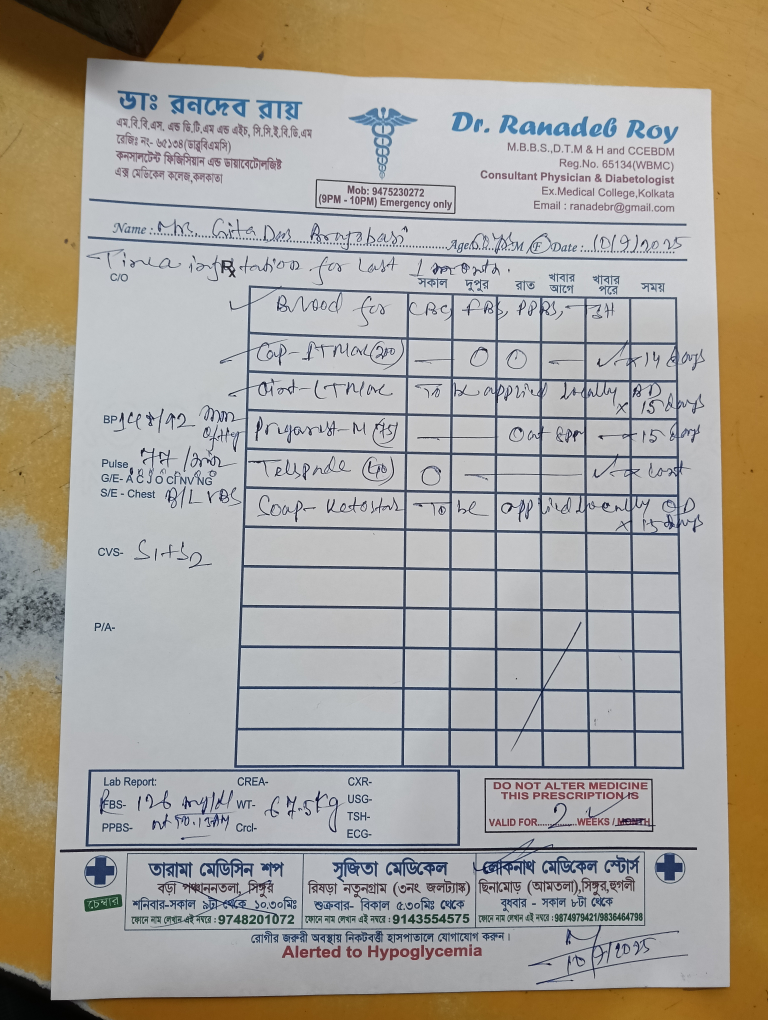 ডাঃ রনদেব রায়
এম.বি.বি.এস. এন্ড ডি.টি.এম এন্ড এইচ, সি.সি.ই.বি.ডি.এম
রেজিঃ নং- ৬৫১৩৪(ডাব্লুবিএমসি)
কনসালটেন্ট ফিজিসিয়ান এন্ড ডায়াবেটোলজিষ্ট
এক্স মেডিকেল কলেজ,কলকাতা
Mob: 9475230272
(9PM - 10PM) Emergency only
Dr. Ranadeb Roy
M.B.B.S.,D.T.M & H and CCEBDM
Reg.No. 65134(WBMC)
Consultant Physician & Diabetologist
Ex.Medical College,Kolkata
Email : ranadebr@gmail.com
Name : Mrs. Gita Das Age M (F) Date : 10/9/2025
Tinea for last 1 month.
C/O Rx
সকাল দুপুর রাত খাবার আগে খাবার পরে সময়
Blood for CBC, FBS, PPBS, TSH
Cap- ITMac (200) — 0 0 — ✓ x 14 days
Oint- LTMac To be applied locally BD x 15 days
BP
- M (75) — — 0 at 8PM — x 15 days
Pulse
Telspade (40) 0 — — — ✓ x cont
G/E- A C J O Cl NV NG
S/E - Chest B/L VBS
Soap- Ketostar To be applied locally OD x 15 days
CVS- S1+S2
P/A-
Lab Report:
CREA-
CXR-
FBS- 126 mg/dl
WT- 67.5 Kg
USG-
PPBS-
Crcl-
TSH-
ECG-
DO NOT ALTER MEDICINE
THIS PRESCRIPTION IS
VALID FOR 2 WEEKS / MONTH
চেম্বার
তারামা মেডিসিন শপ
বড়া পঞ্চাননতলা, সিঙ্গুর
শনিবার-সকাল ৯টা থেকে ১০.৩০মিঃ
ফোনে নাম লেখান এই নম্বরে : 9748201072
সৃজিতা মেডিকেল
রিষড়া নতুনগ্রাম (৩নং জলট্যাঙ্ক)
শুক্রবার- বিকাল ৫.৩০মিঃ থেকে
ফোনে নাম লেখান এই নম্বরে : 9143554575
লোকনাথ মেডিকেল স্টোর্স
ছিনামোড় (আমতলা),সিঙ্গুর,হুগলী
বুধবার - সকাল ৮টা থেকে
ফোনে নাম লেখান এই নম্বরে :9874979421/9836464798
রোগীর জরুরী অবস্থায় নিকটবর্তী হাসপাতালে যোগাযোগ করুন।
Alerted to Hypoglycemia
10/9/2025